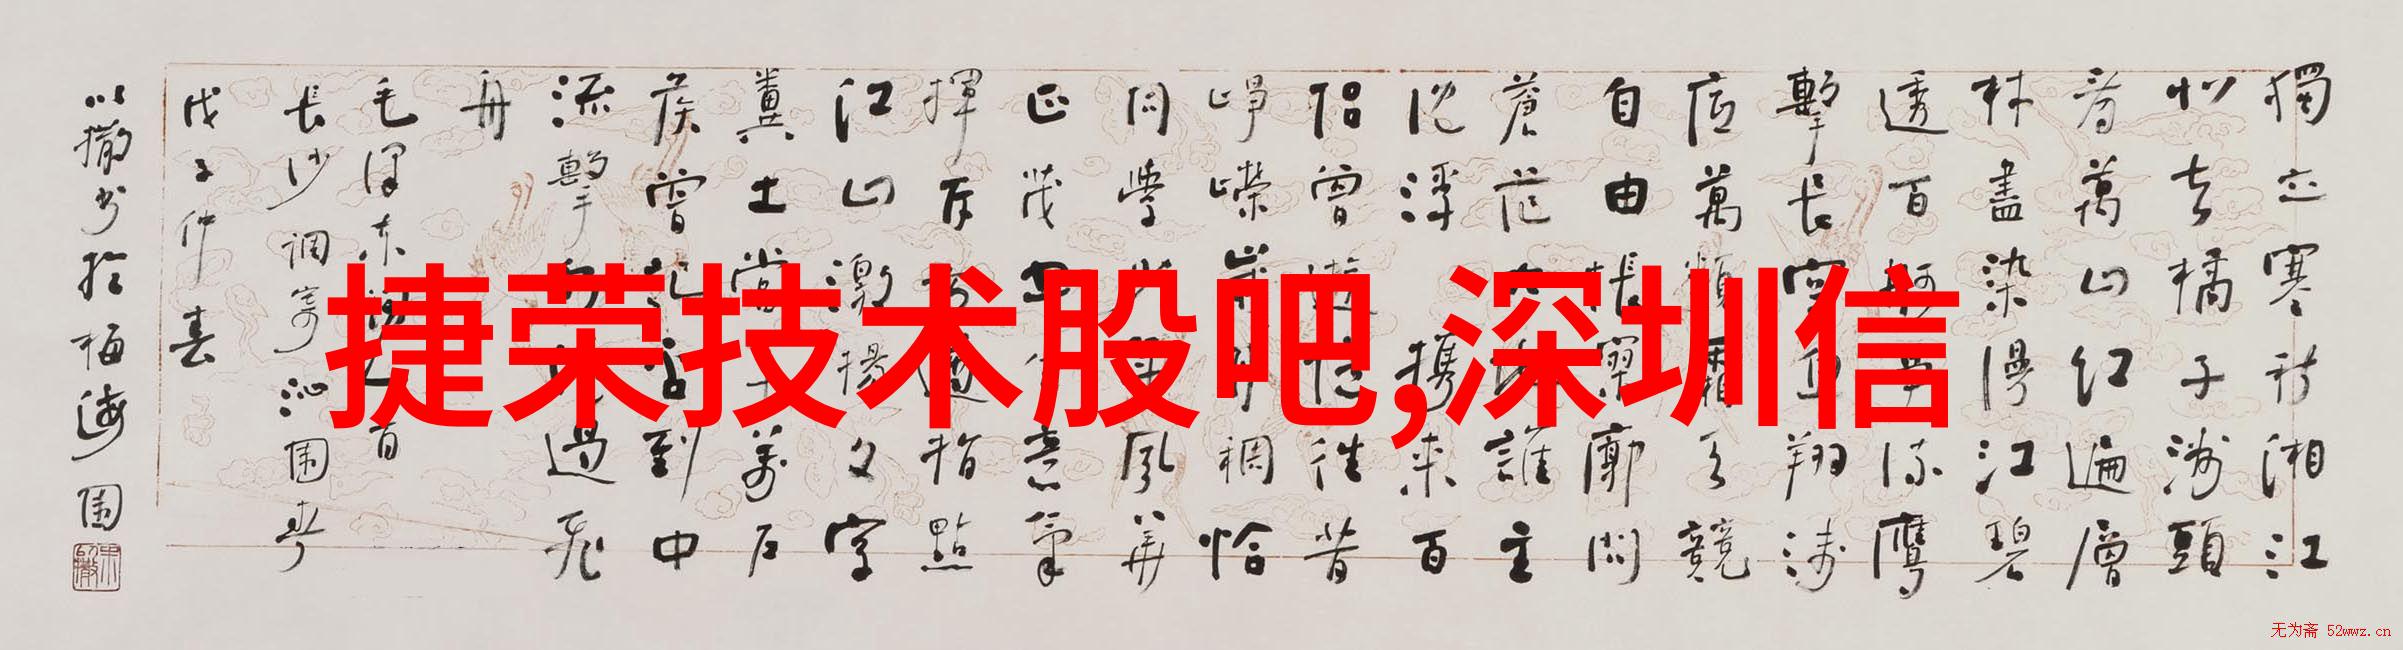 獨立寒秋湘江
北去橘子洲頭
看萬山紅遍層
林盡染漫江碧
透百舸爭流鹰
擊長空魚翔淺
底萬類霜天競
自由悵寥廓問
蒼茫大地誰主
沈浮 攜来百
侣曾遊憶往昔
崢嶸歲月稠恰
同學少年風華
正茂書生意氣
揮斥方遒指點
江山激揚文字
糞土當年萬户
侯曾記否到中
流擊水浪遏飛
舟
毛澤東
長沙 調寄沁園春
戊子仲春
以撒書於梅海園
捷荣技术股吧,深圳信
无为斋 52wwz.cn